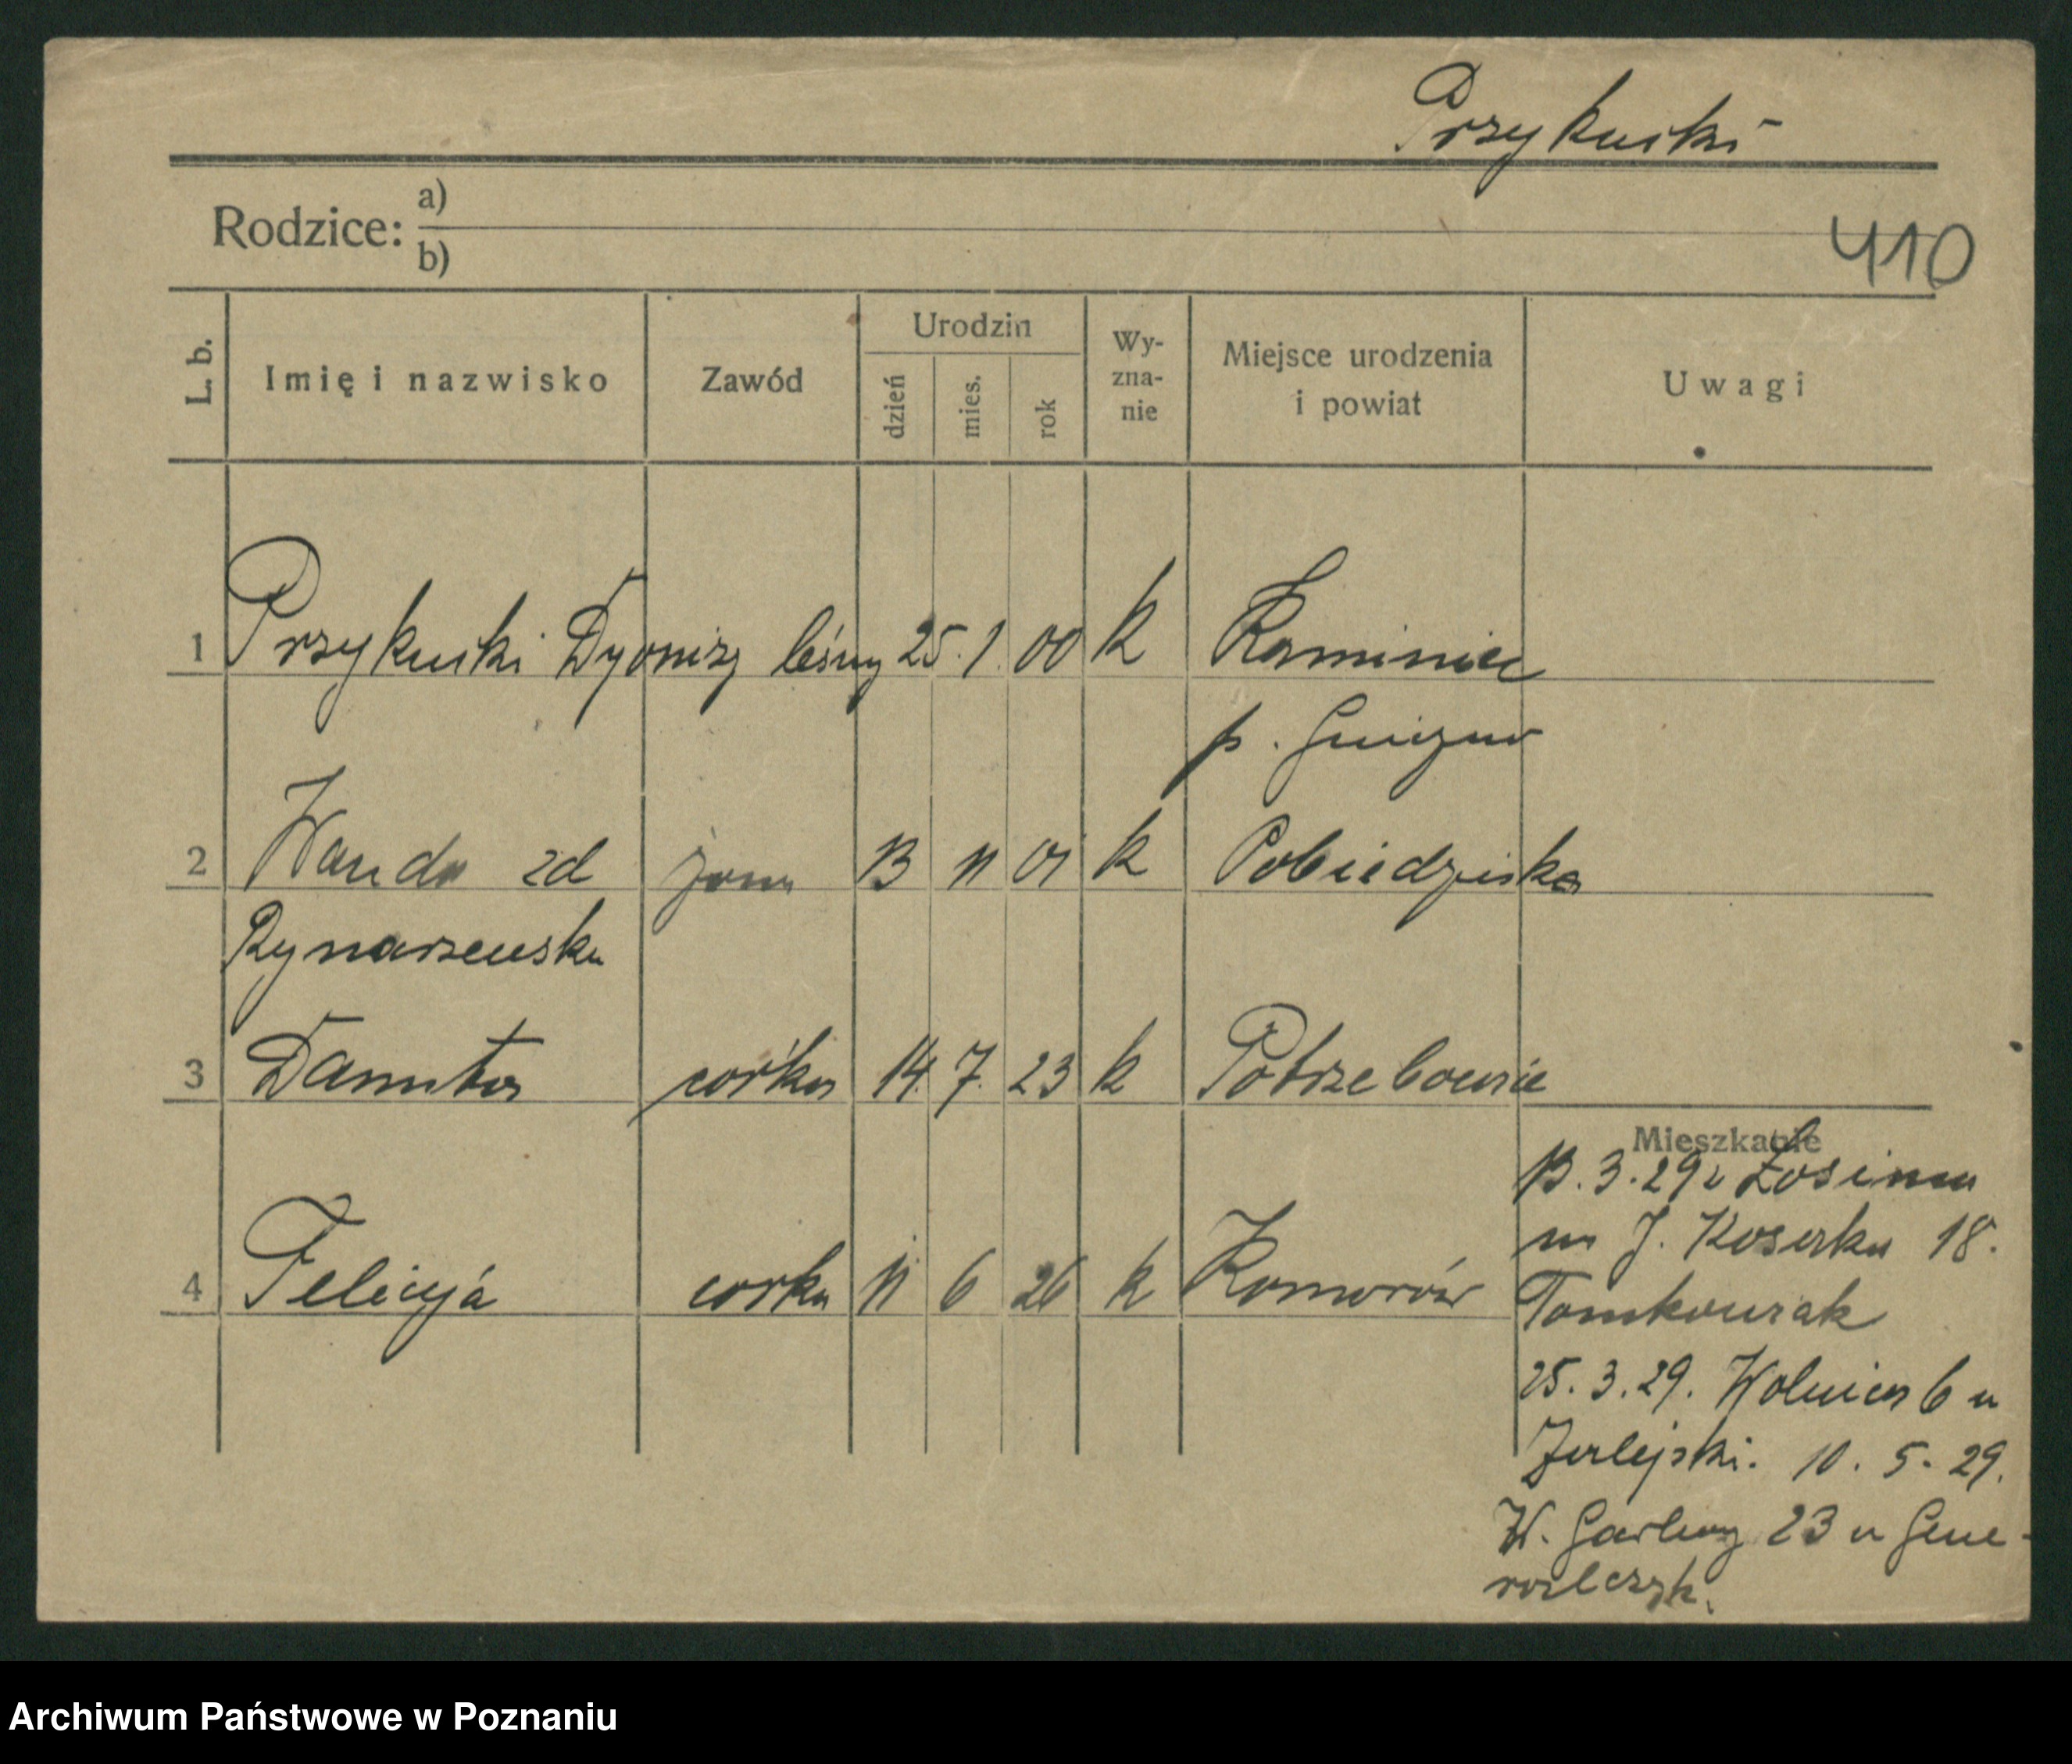 Przykucki
Rodzice: a)
b)
410
L. b.
Imię i nazwisko
Zawód
Urodzin
dzień
mies.
rok
Wy-
zna-
nie
Miejsce urodzenia
i powiat
Uwagi
1 Przykucki Dyonizy leśny 25. 1. 00 k Kaminiec
p. Gniezno
2 Wanda zd żona 13 11 01 k Pobiedziska
Rynarzewska
3 Danuta córka 14. 7. 23 k Potrzebowie
Mieszkanie
13. 3. 29 z
4 Felicyja corka 11 6 26 k Komorów
m J. 18.
Tomkowiak
25. 3. 29. Wolnica 6 u
10. 5. 29.
W. Garbary 23 u Gene-
ralczyk.
Archiwum Państwowe w Poznaniu